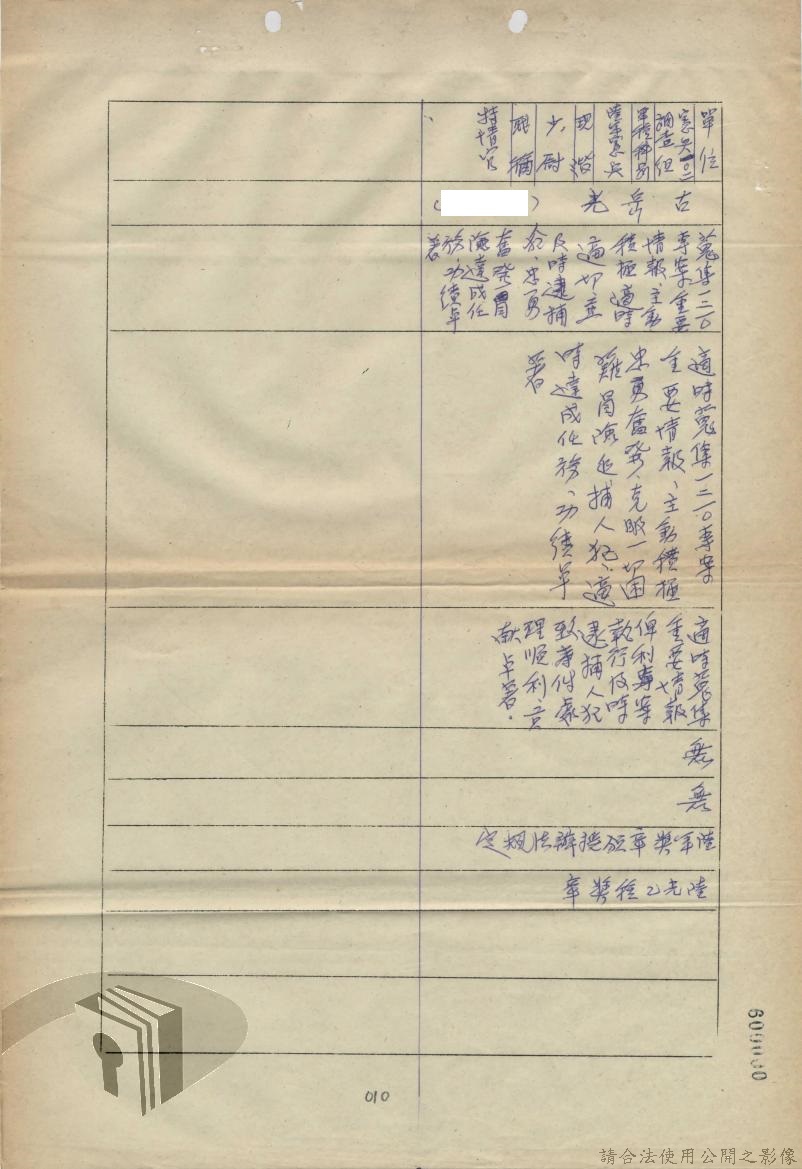 單位
憲兵二〇二
調查組
軍種科別
陸軍憲兵
現階
少尉
職稱
特情官
古岳光
(
)
蒐集一二一〇
專案重要
情報、主動
積極適時
適切並
及時逮捕
命、忠勇
奮發冒
險達成任
務、功績卓
著
適時蒐集一二一〇專案
重要情報、主動積極
忠勇奮發、克服一切困
難冒險追捕人犯、適
時達成任務、功績卓
著
適時蒐集
重要情報
俾利專案
執行及時
逮捕人犯
致專件處
理順利、貢
獻卓著。
無
無
陸軍獎章頒授辦法規定
陸光乙種獎章
010
請合法使用公開之影像